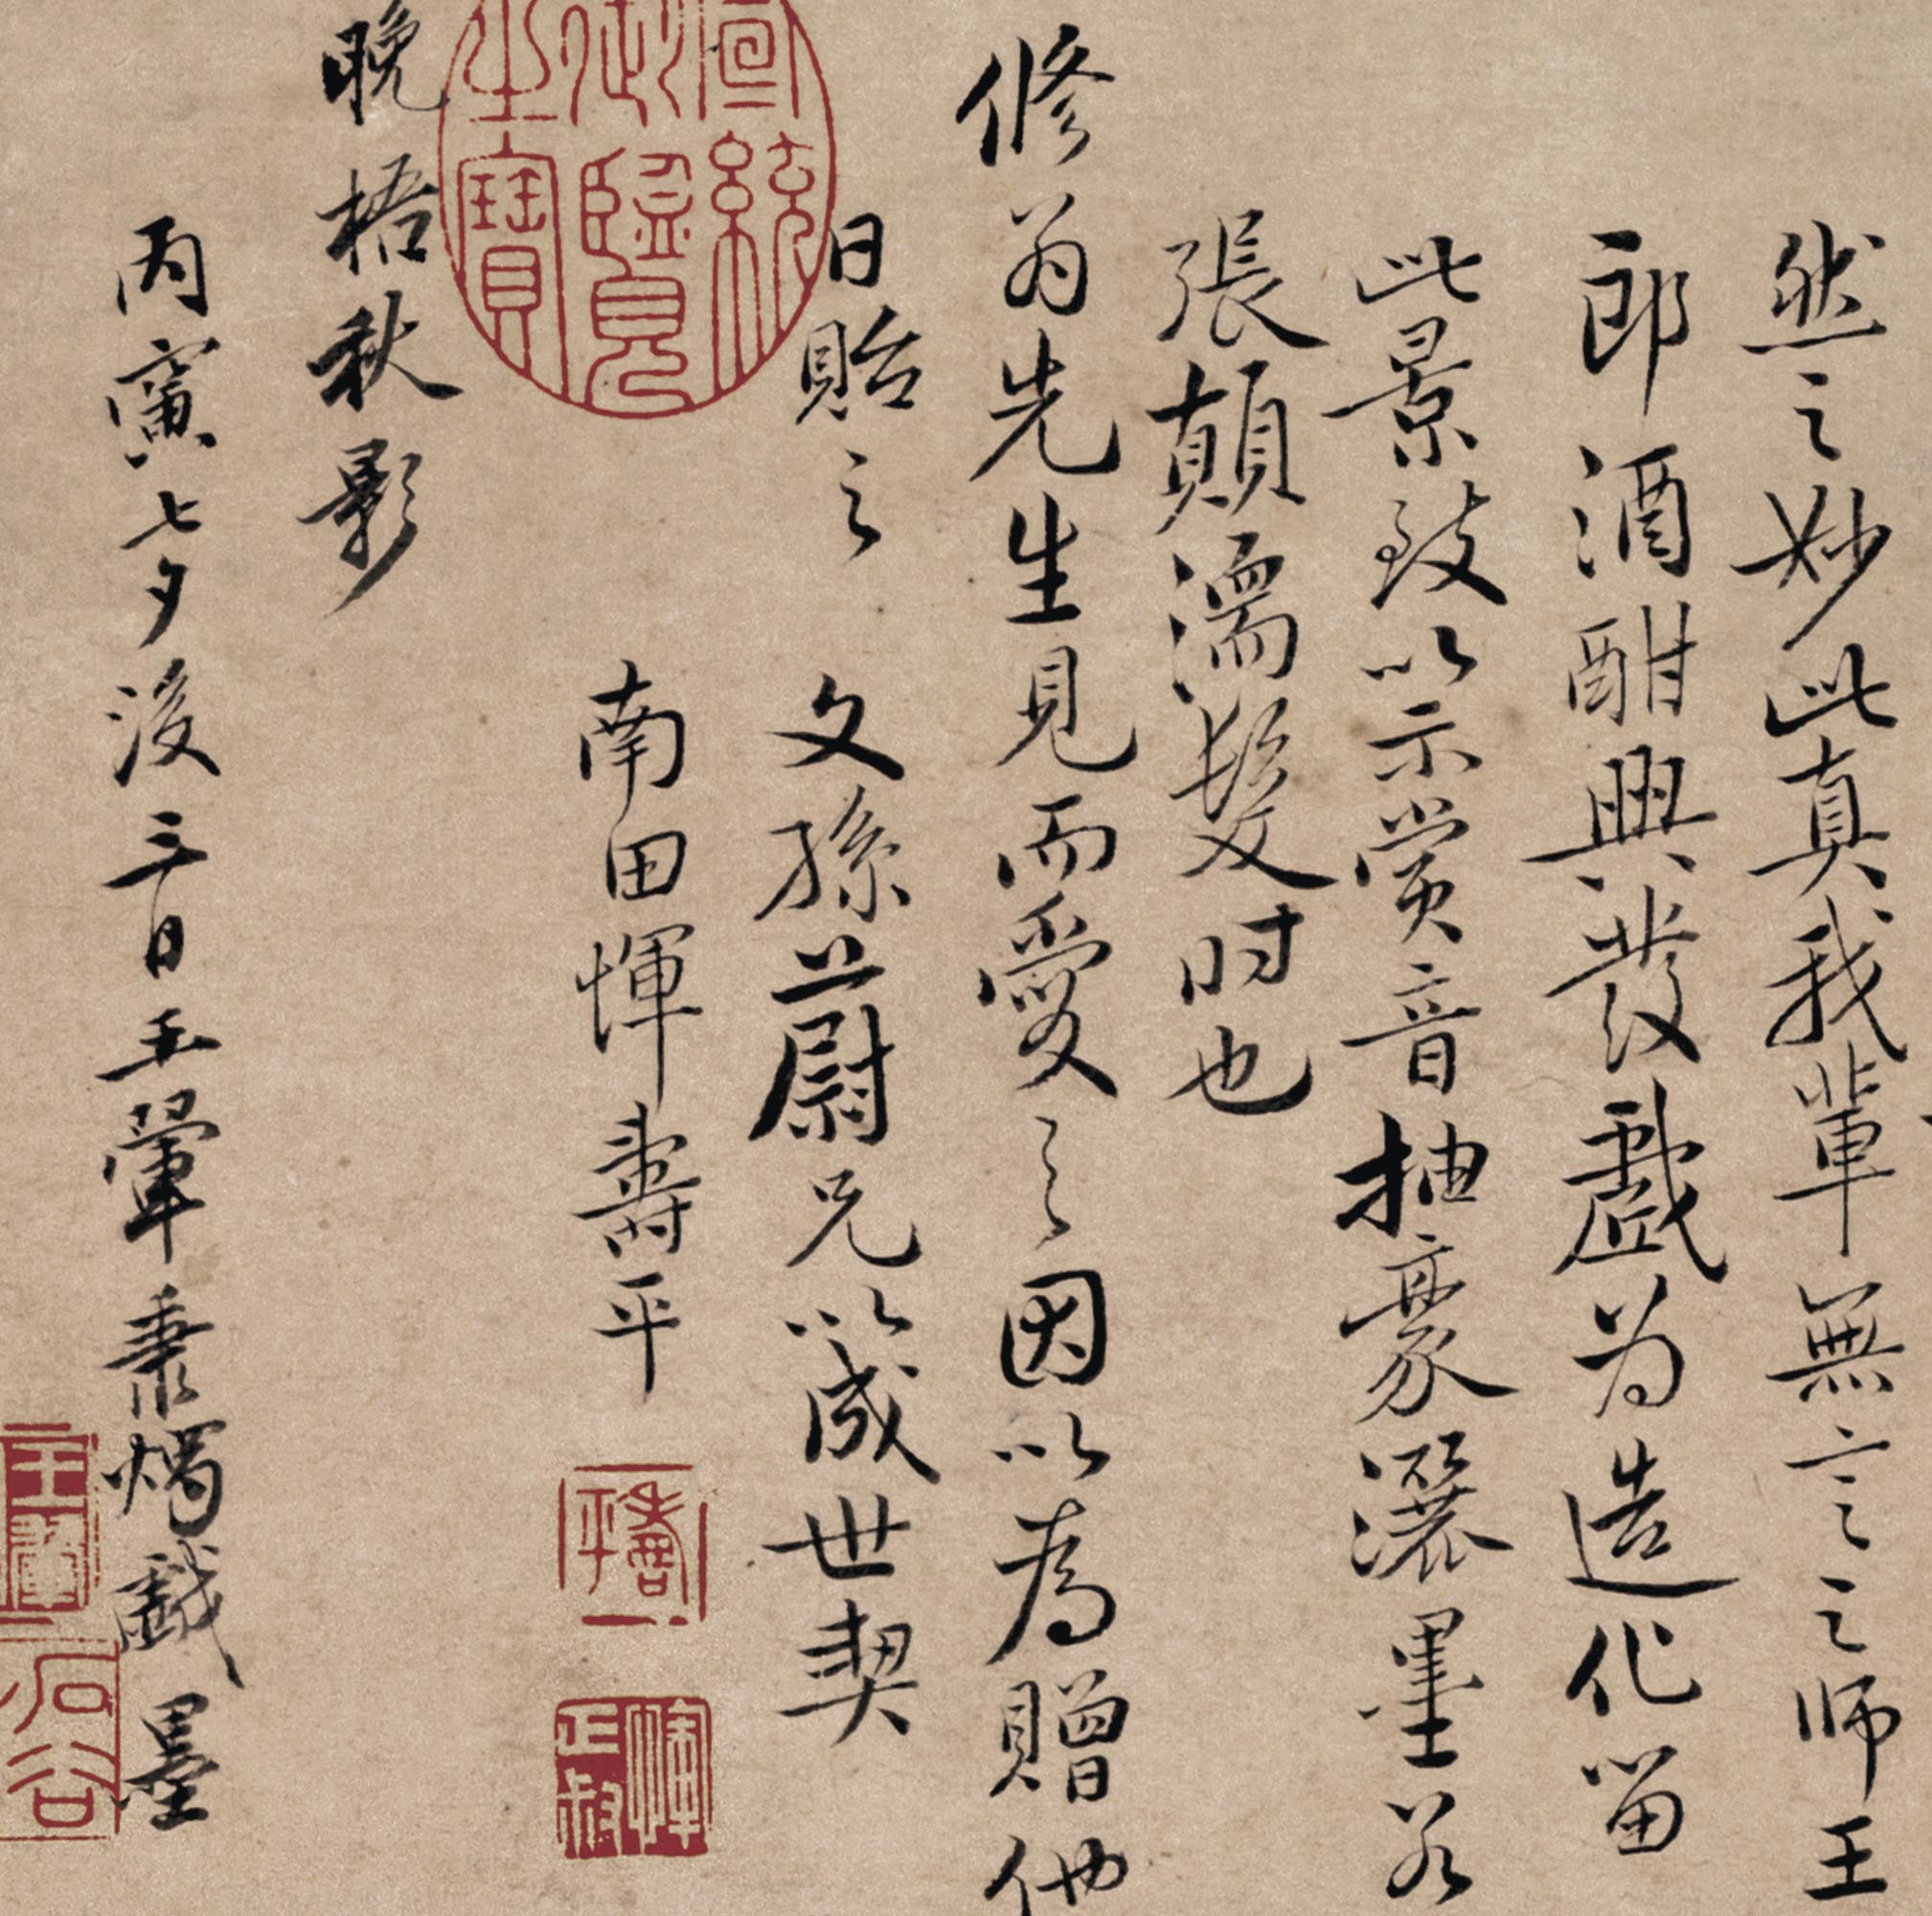 然之妙此真我輩無言之师王
郎酒酣興發戲为造化留
此景致以示赏音抽豪灑墨若
張顛濡髮时也
修翁先生見而愛之因以為贈他
日貽之
文孫并蔚兄以成世契
南田惲壽平
壽平
惲正叔
宣統御覽之寶
晚梧秋影
丙寅七夕後三日王翬秉燭戲墨
王翬
石谷